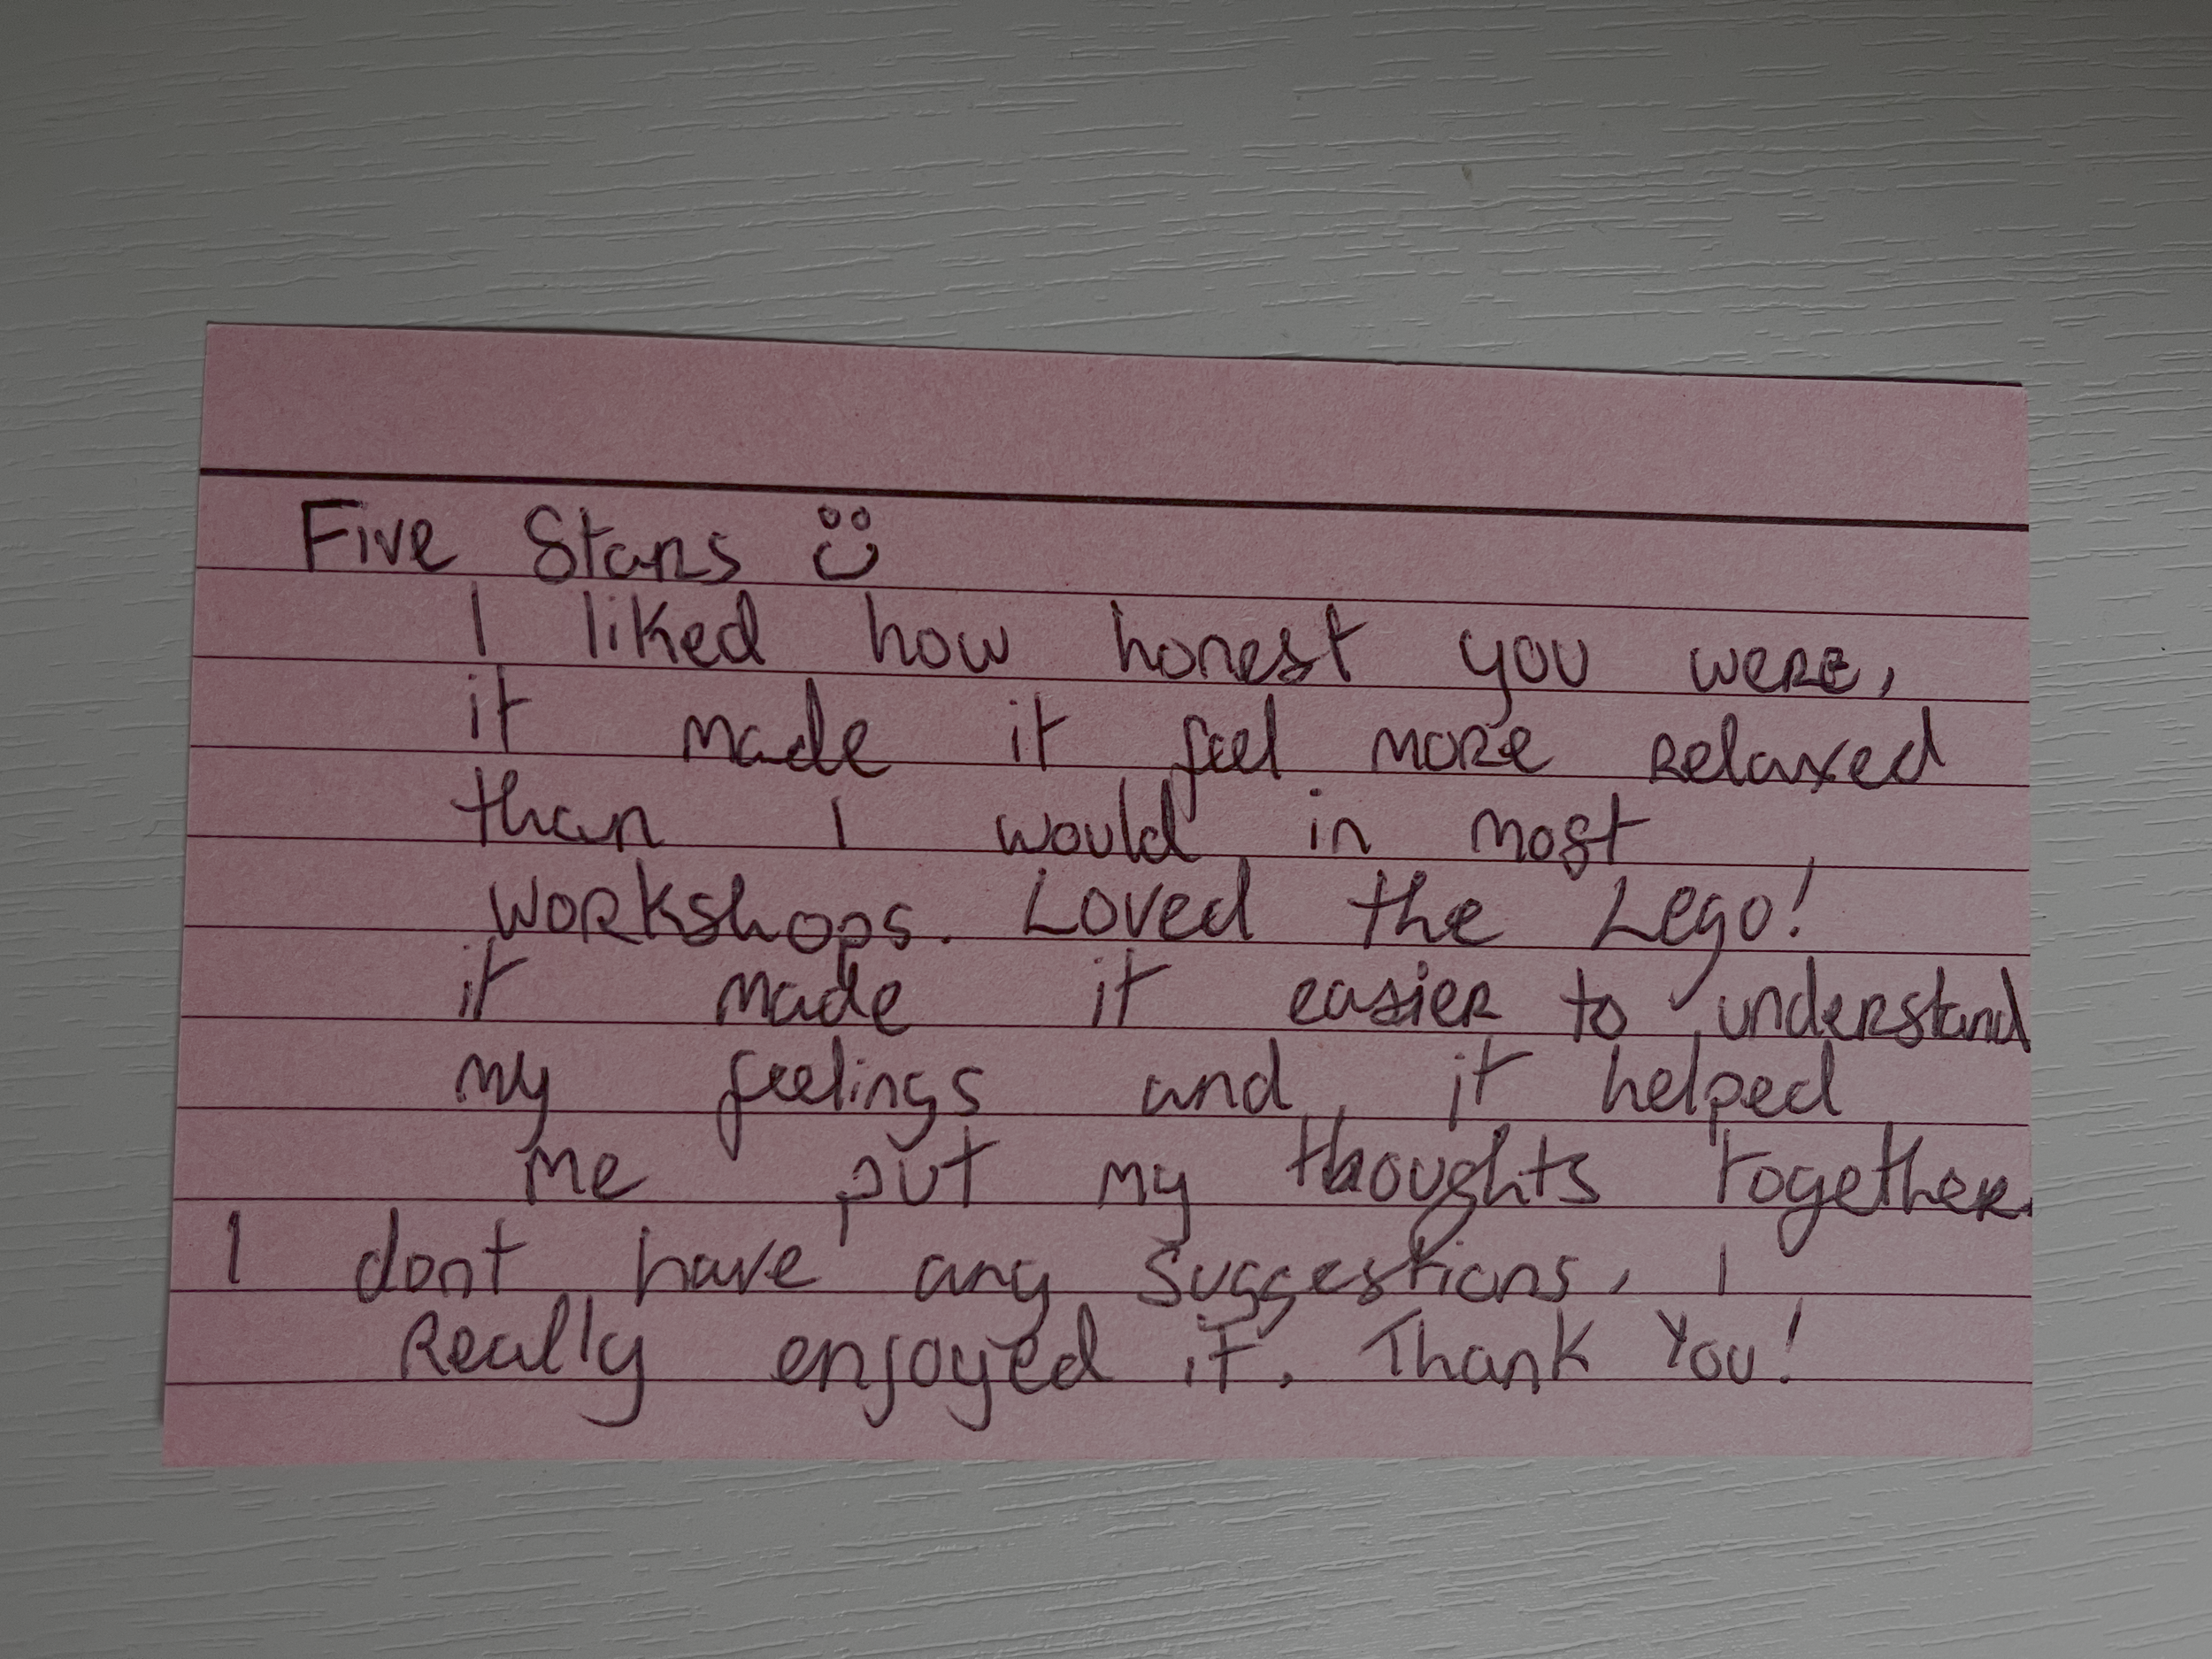 Five Stars ☺
I liked how honest you were,
it made it feel more relaxed
than I would in most
workshops. Loved the Lego!
it made it easier to understand
my feelings and it helped
me put my thoughts together.
I dont have any suggestions, I
Really enjoyed it. Thank You!